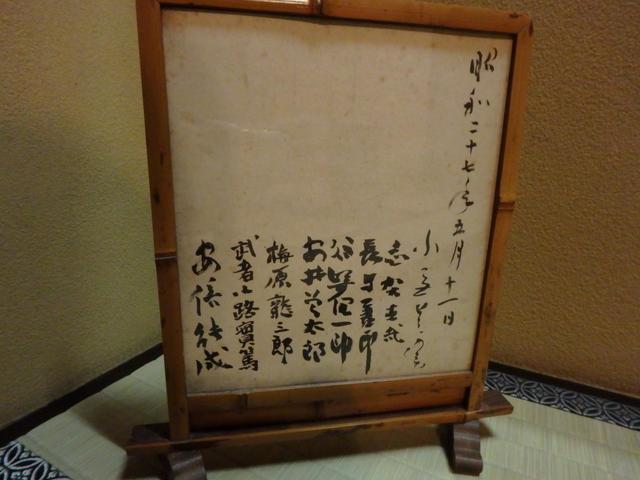 昭和二十七年五月十一日
小宮豊隆
志賀直哉
長与善郎
谷崎潤一郎
安井曽太郎
梅原龍三郎
武者小路實篤
安倍能成